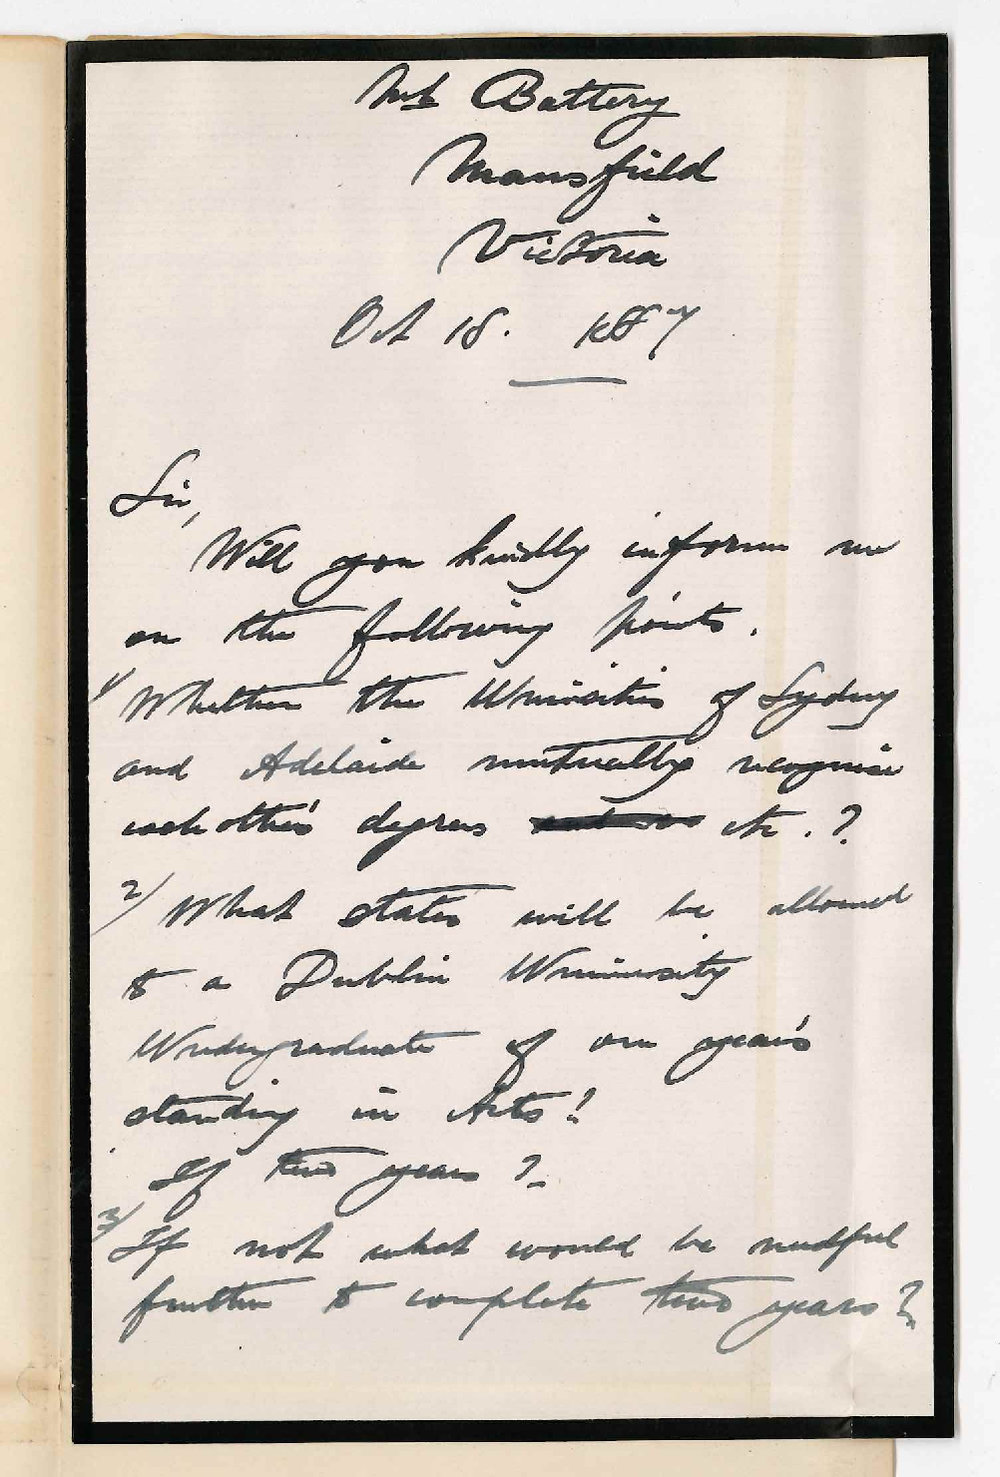 Mt Battery
Mansfield
Victoria
Oct 18. 1887
Sir,
Will you kindly inform me
on the following points.
1/ Whether the Universities of Sydney
and Adelaide mutually recognise
each other's degrees etc.?
2/ What status will be allowed
to a Dublin University
Undergraduate of one year's
standing in Arts?
If two years?
3/ If not what would be needful
further to complete two years?